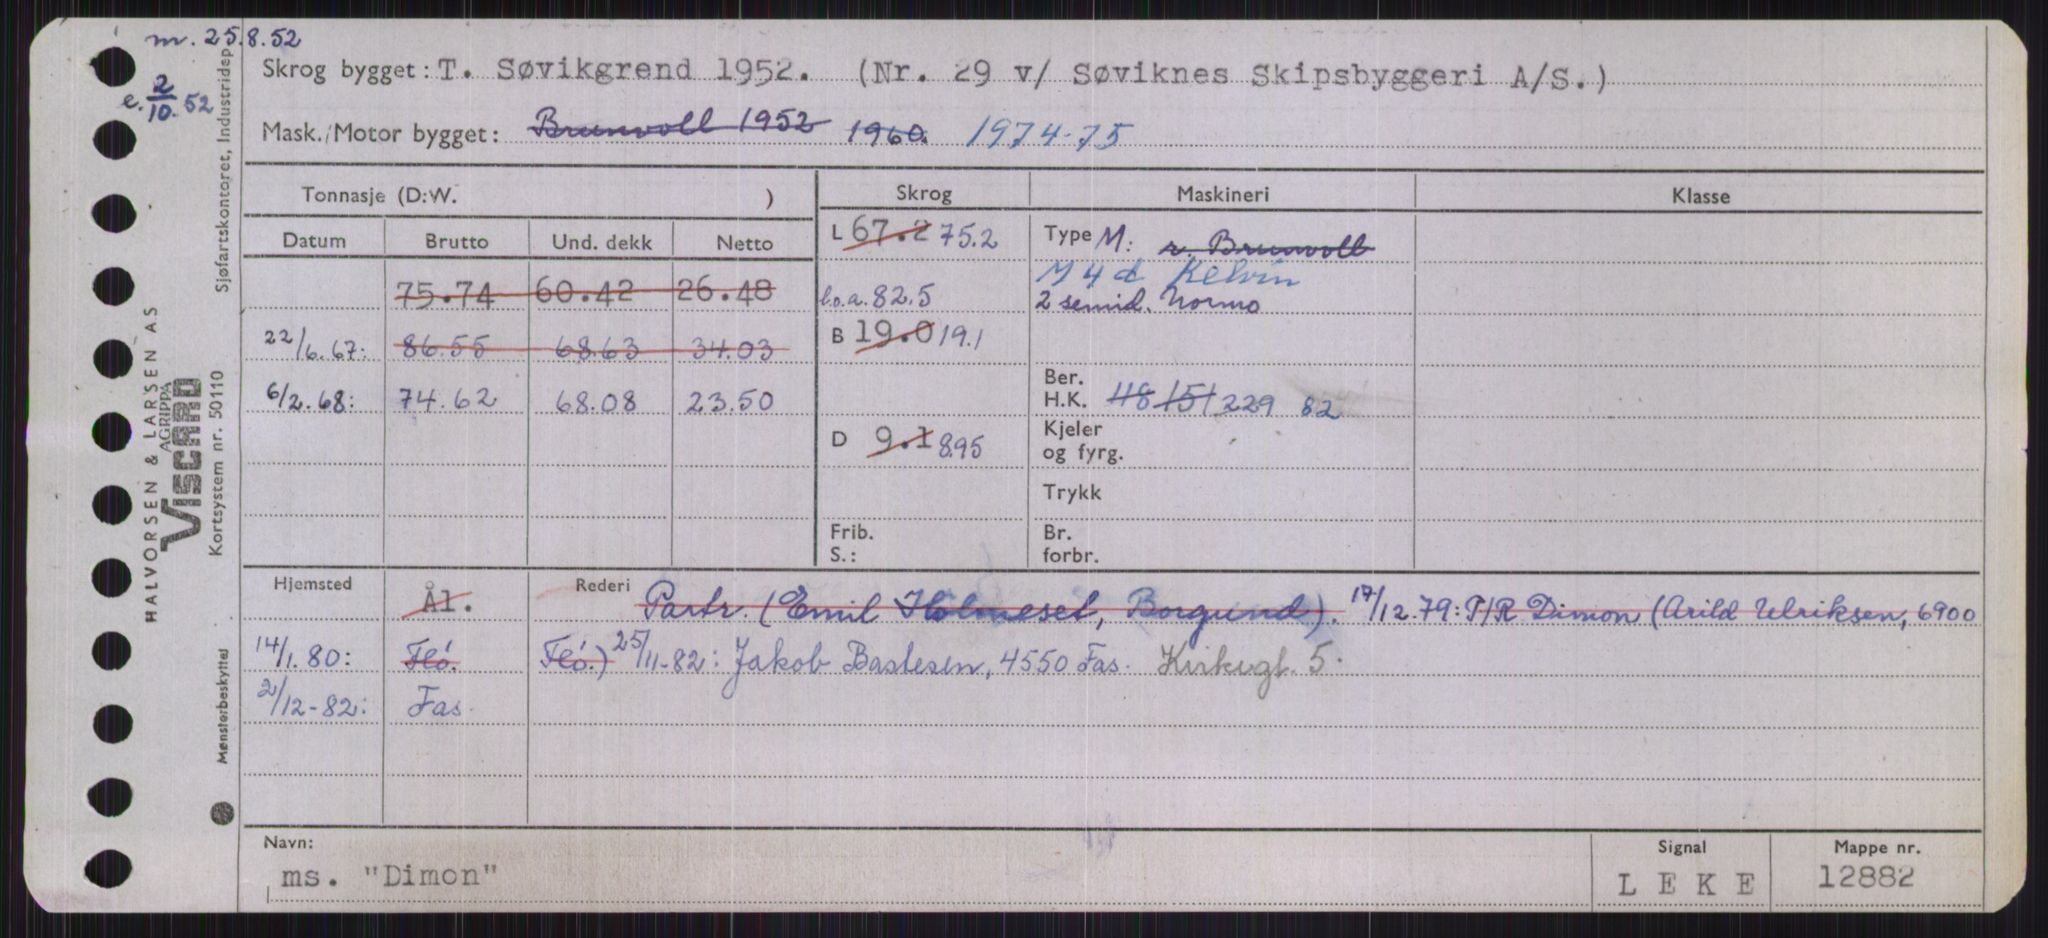 m. 25.8.52
e. 2/10. 52
Skrog bygget: T. Søvikgrend 1952. (Nr. 29 v/ Søviknes Skipsbyggeri A/S.)
Mask./Motor bygget: Brunvoll 1952 1960. 1974-75
Tonnasje (D:W. ) Skrog Maskineri Klasse
Datum Brutto Und. dekk Netto
L 67.2 75.2 Type M: r. Brunvoll
M 4 d Kelvin
75.74 60.42 26.48 l.o.a. 82.5 2 semid. Normo
22/6.67: 86.55 68.63 34.03 B 19.0 19.1
6/2.68: 74.62 68.08 23.50 Ber. H.K. 118 151 229 82
D 9.1 8.95 Kjeler og fyrg.
Trykk
Frib. S.: Br. forbr.
Hjemsted Ål. Rederi Partr. (Emil Holmeset, Borgund). 17/12.79: P/R Dimon (Arild Ulriksen, 6900
14/1.80: Flö. Flö.) 25/11-82: Jakob Bastesen, 4550 Fas. Kirkegt. 5.
2/12-82: Fas.
Navn: ms. "Dimon"
Signal LEKE
Mappe nr. 12882
HALVORSEN & LARSEN AS
AGRIPPA
VISCARD
Kortsystem nr. 50110
Sjøfartskontoret, Industridep
Mønsterbeskyttet